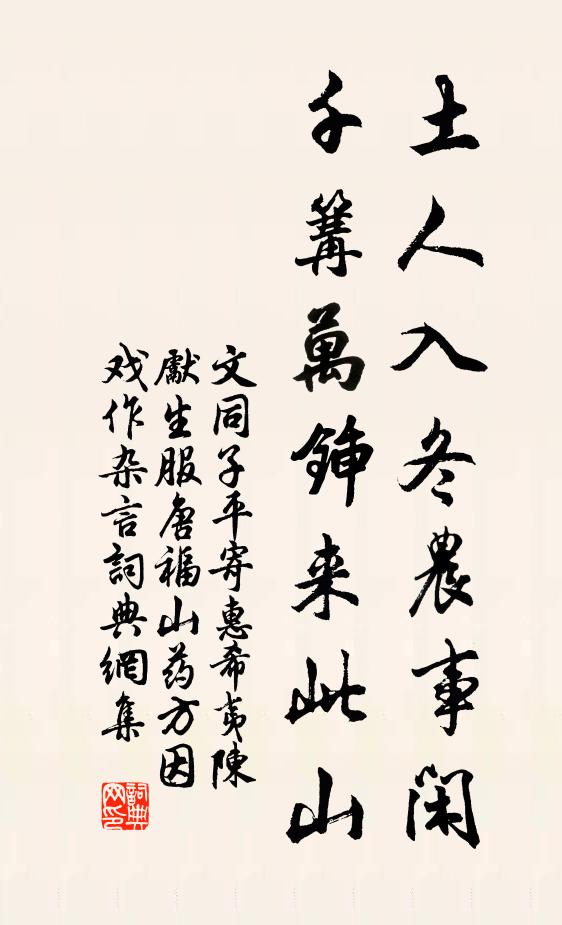 土人入冬農事閑
千篝萬鍤来此山
文同子平寄惠希夷陳
獻生服唐福山药方因
戏作杂言詞典網集
詞典網印